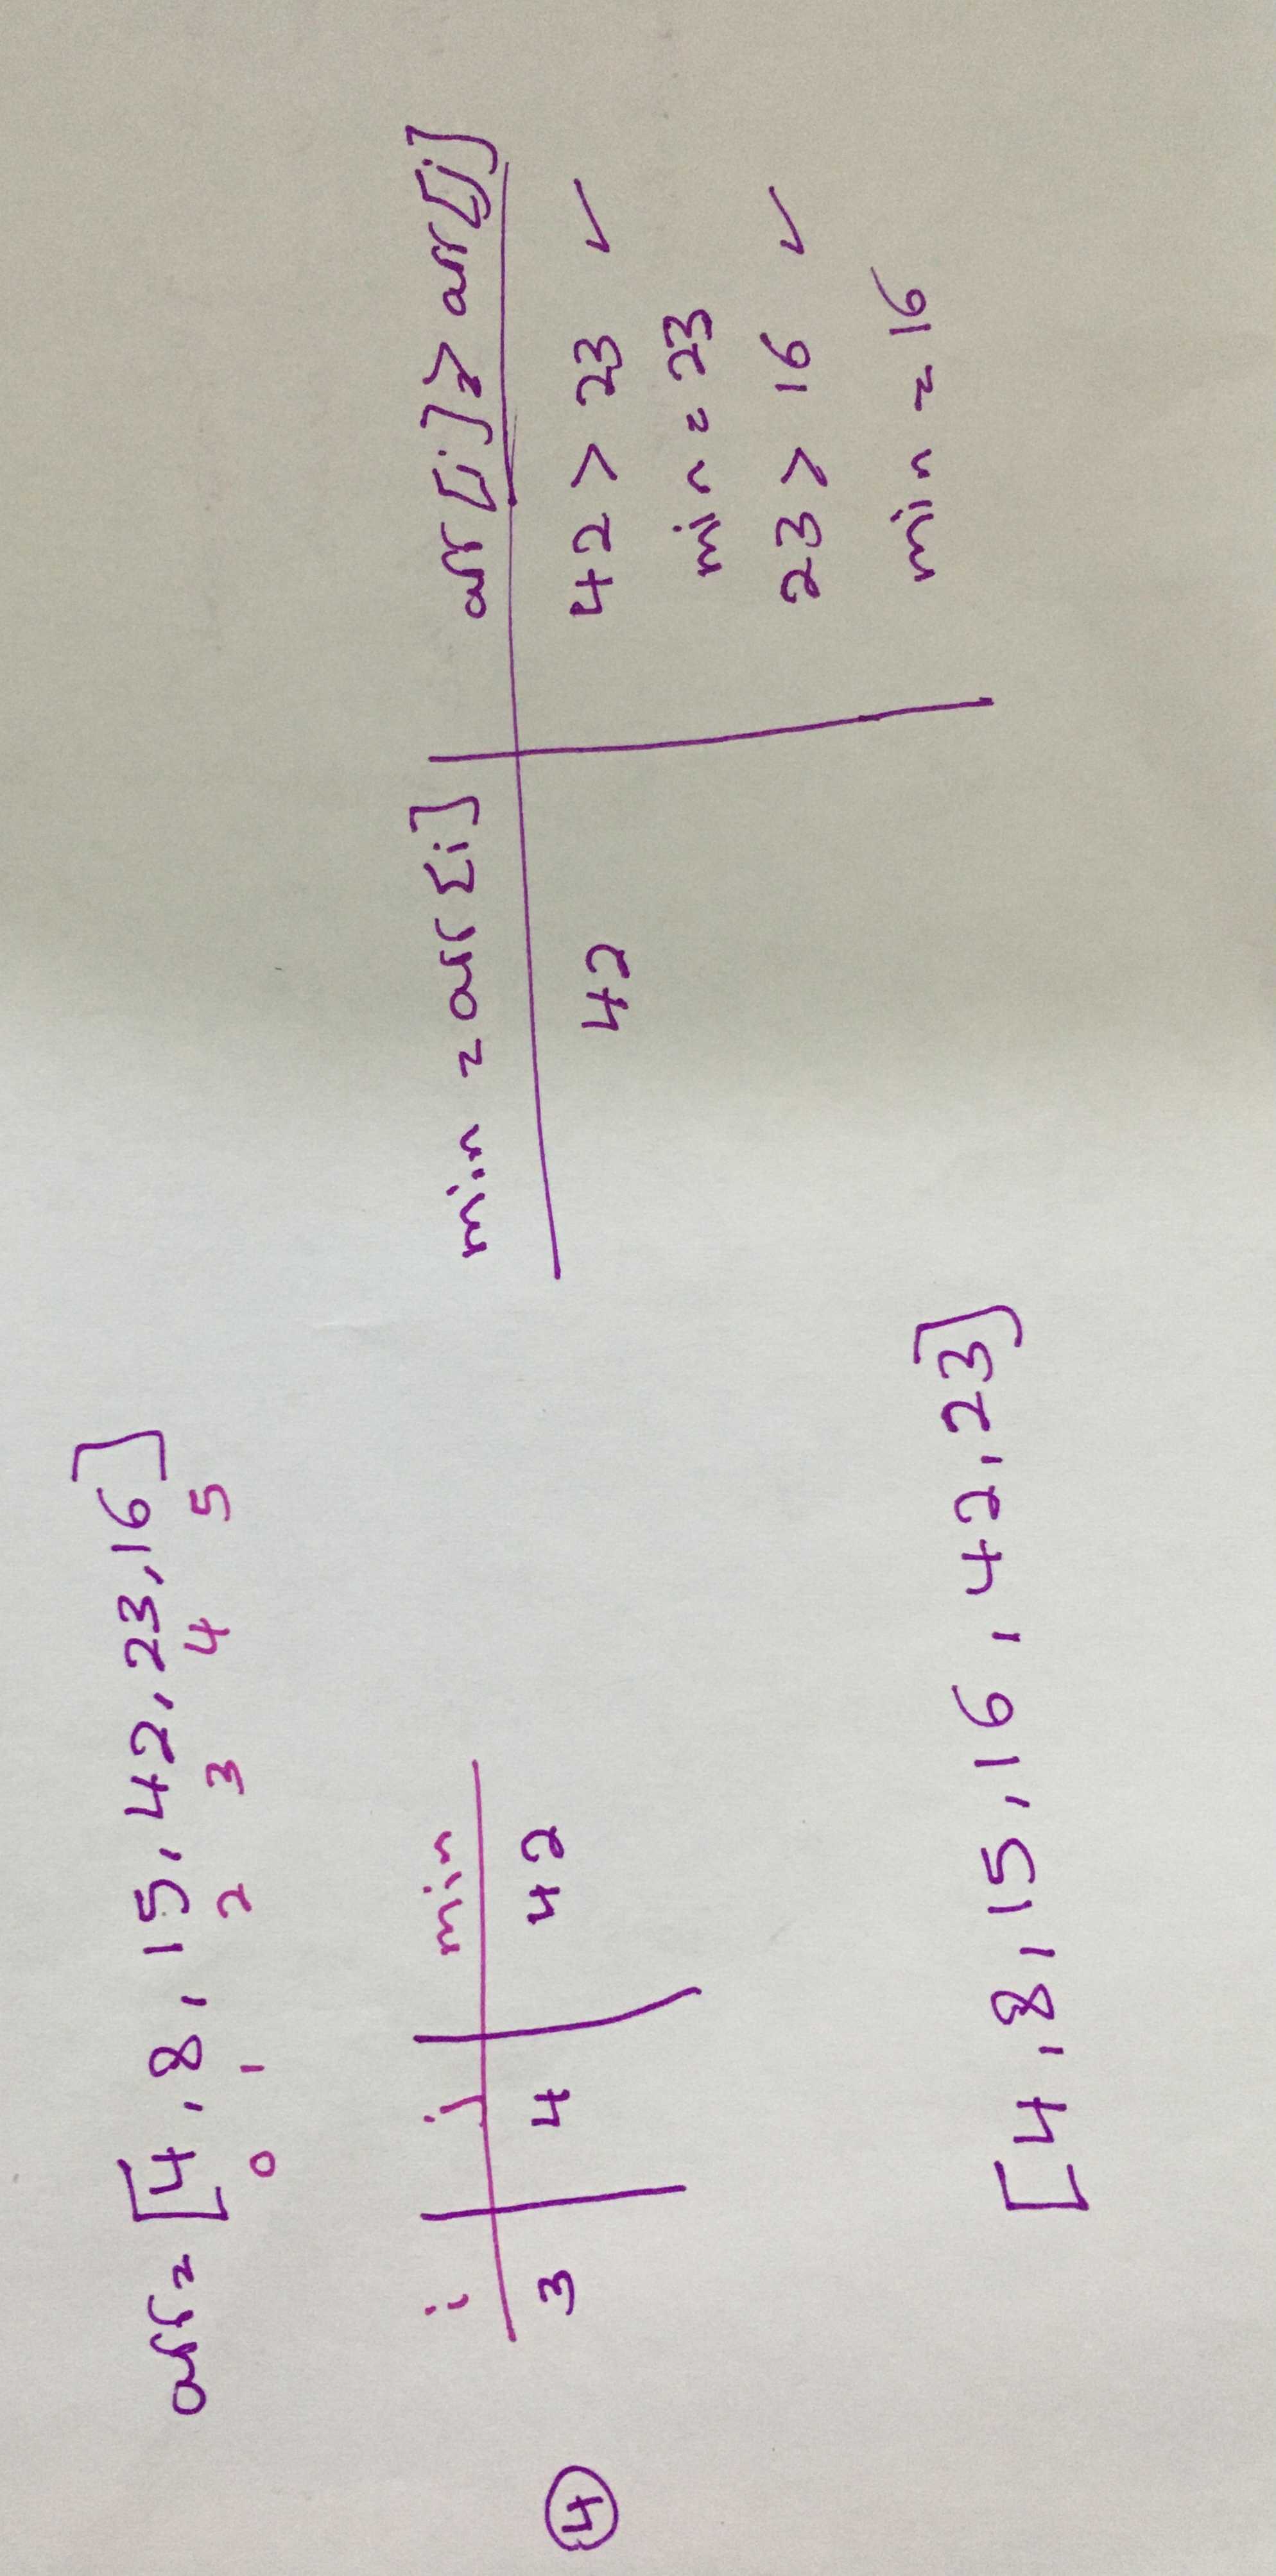 arr = [4, 8, 15, 42, 23, 16]
0 1 2 3 4 5
i j min
min = arr[i] arr[i] > arr[j]
4
3 4 42
42 42 > 23 ✓
min = 23
23 > 16 ✓
min = 16
[4, 8, 15, 16, 42, 23]